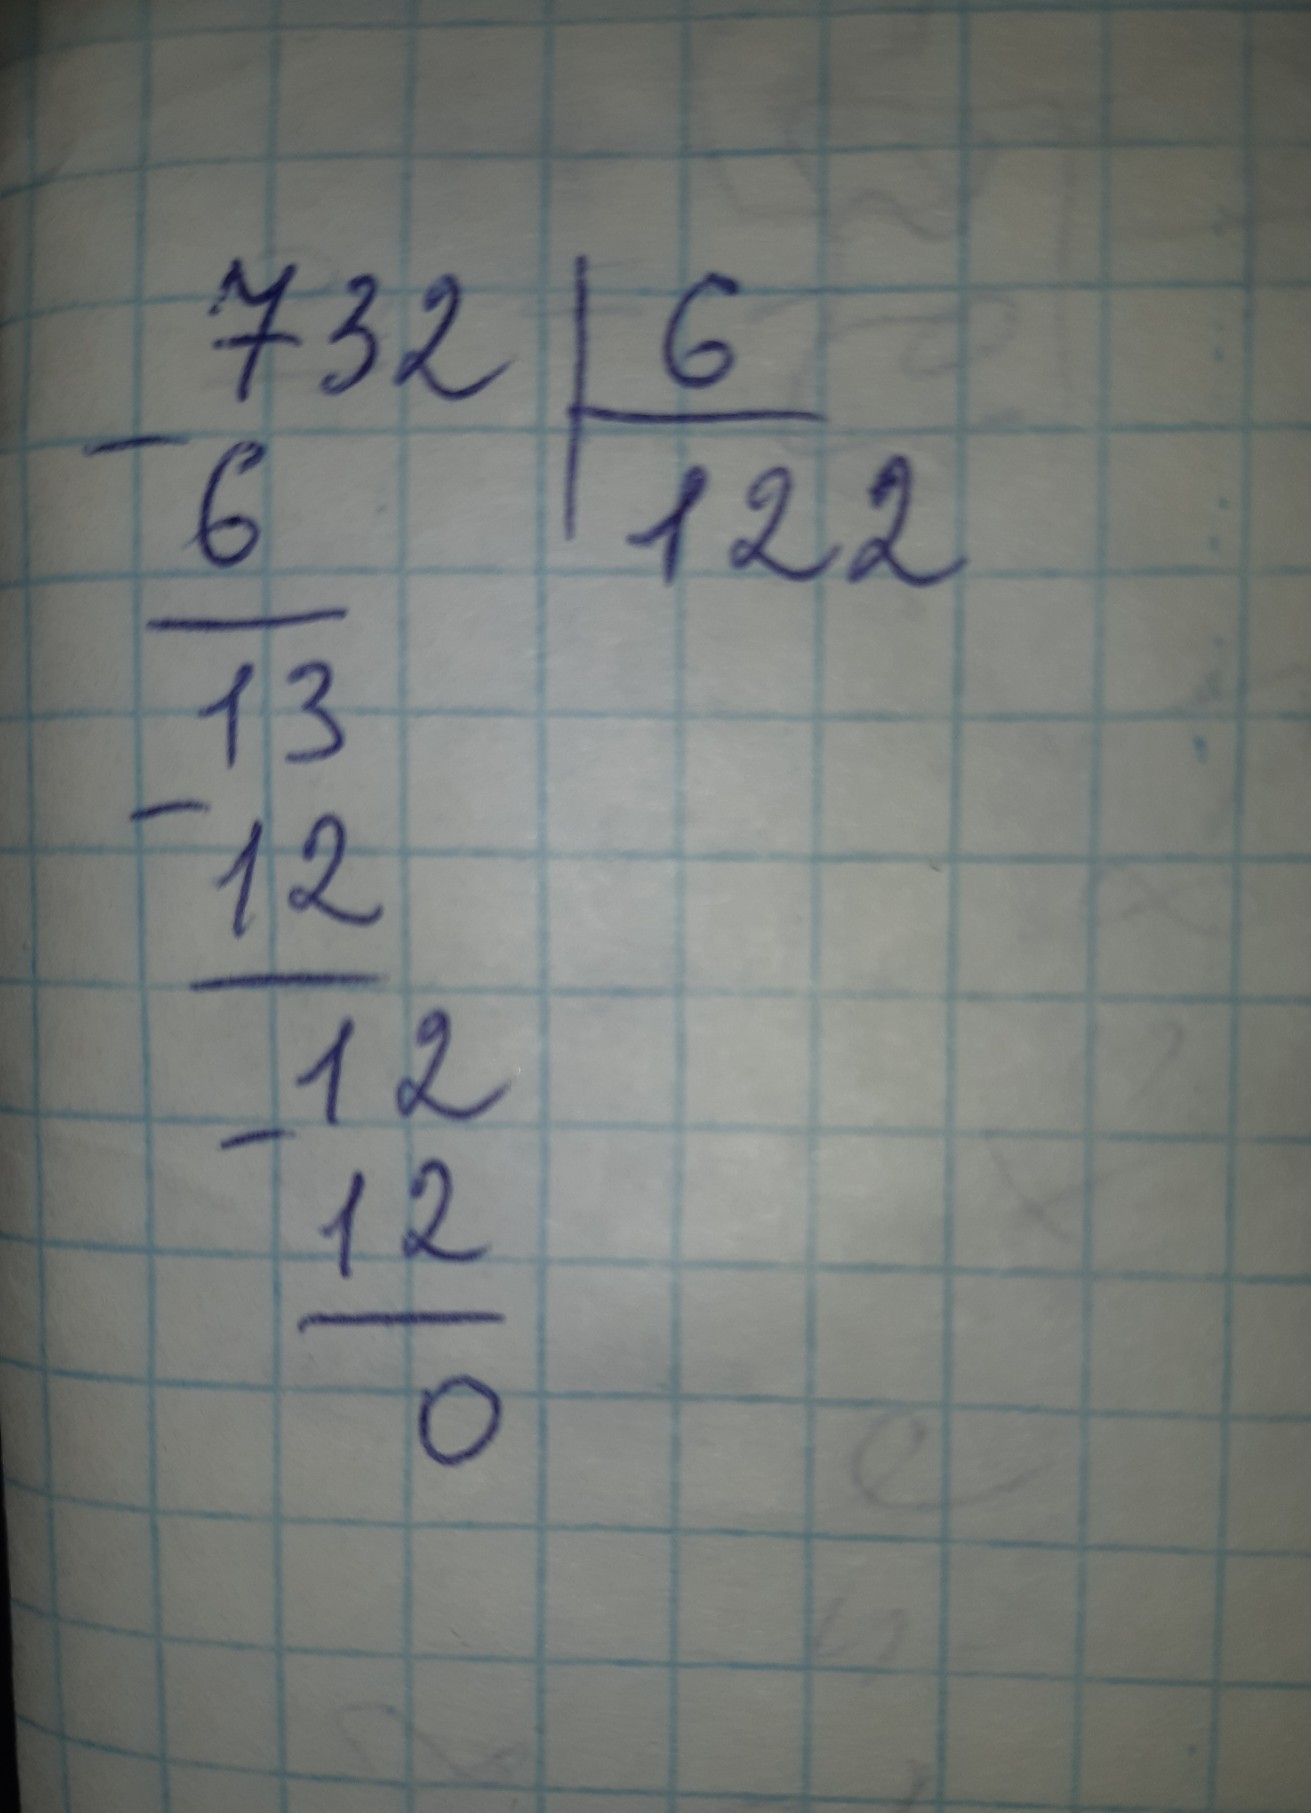 732 | 6
- 6 122
13
- 12
12
- 12
0